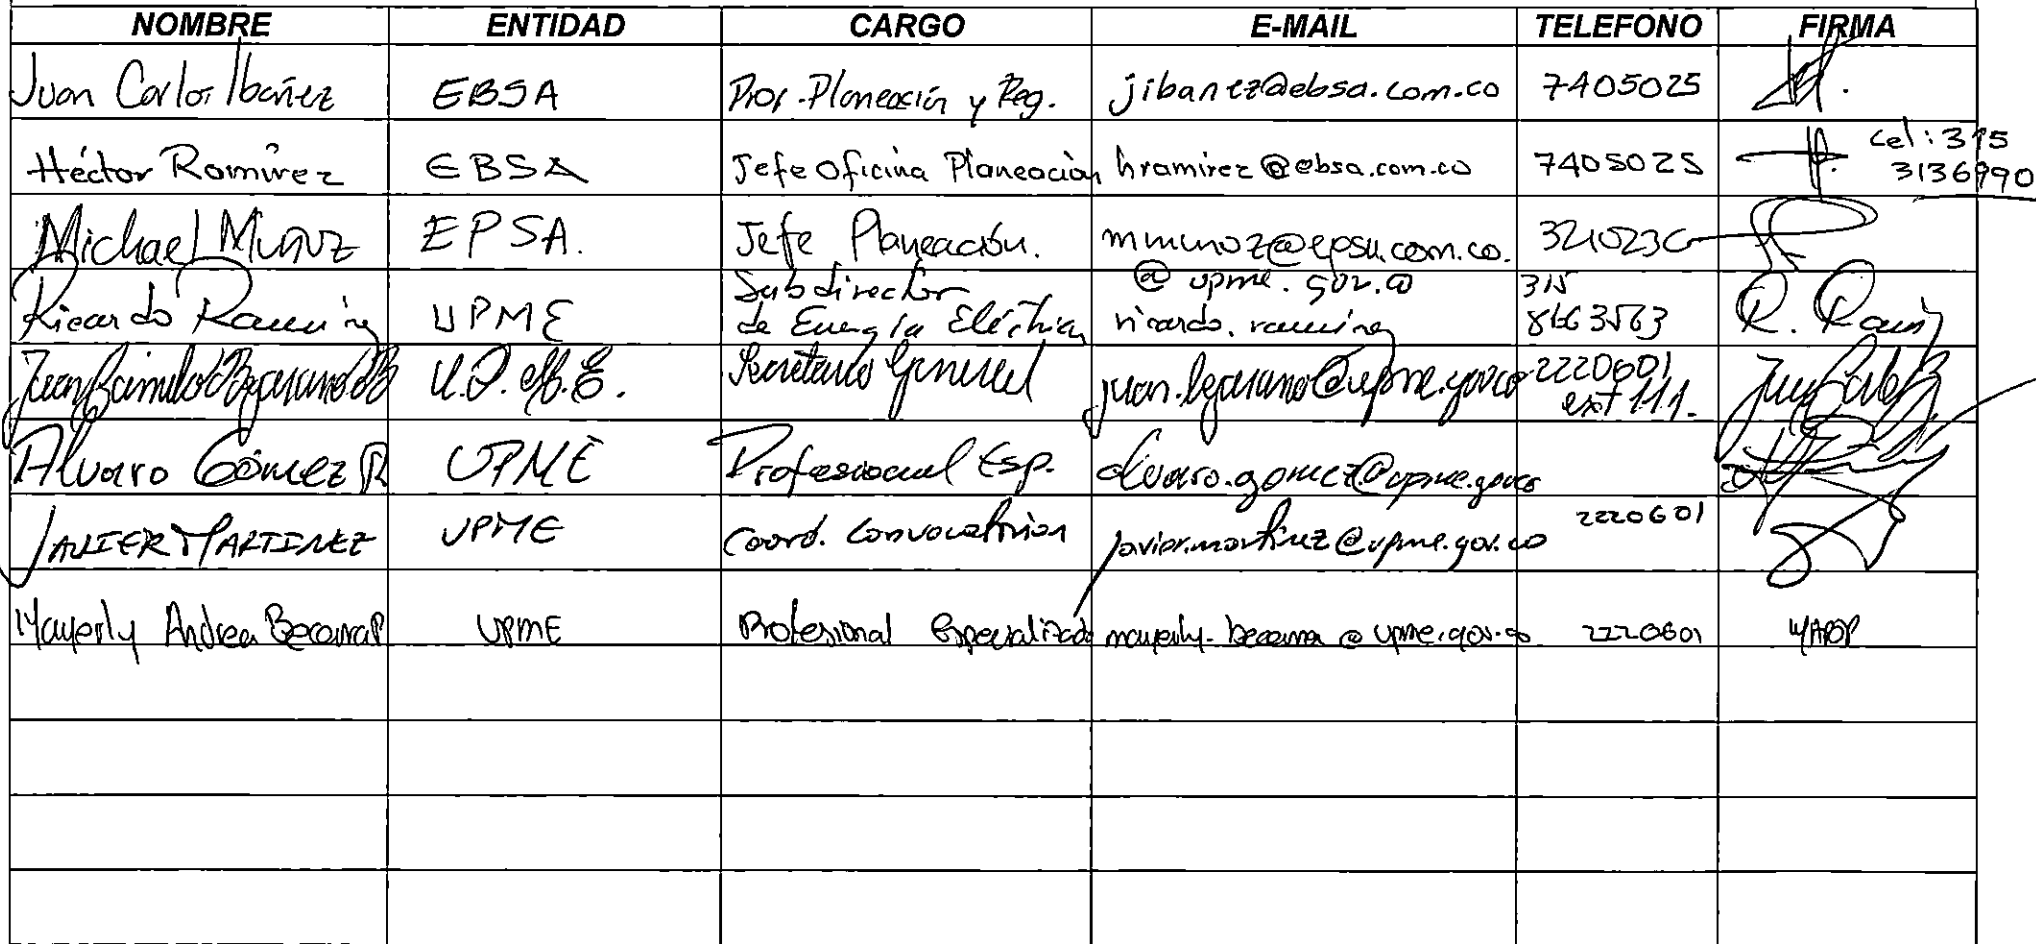 NOMBRE ENTIDAD CARGO E-MAIL TELEFONO FIRMA
Juan Carlos Ibañez EBSA Prof. Planeación y Reg. jibanez@ebsa.com.co 7405025
Héctor Ramírez EBSA Jefe Oficina Planeación hramirez@ebsa.com.co 7405025 cel: 315
3136990
Michael Muñoz EPSA. Jefe Planeación. mmunoz@epsa.com.co. 321023
Subdirector @upme.gov.co 315
Ricardo Ramirez UPME de Energía Eléctrica ricardo.ramirez 8663563 R. Ramirez
Juan Camilo Bejarano B U.P.M.E. Secretario General juan.bejarano@upme.gov.co 2220601
ext 111.
Alvaro Gómez R UPME Profesional Esp. alvaro.gomez@upme.gov.co
JAVIER MARTINEZ UPME Coord. Convocatorias javier.martinez@upme.gov.co 2220601
Mayerly Andrea Becerra P UPME Profesional Especializado mayerly.becerra@upme.gov.co 2220601